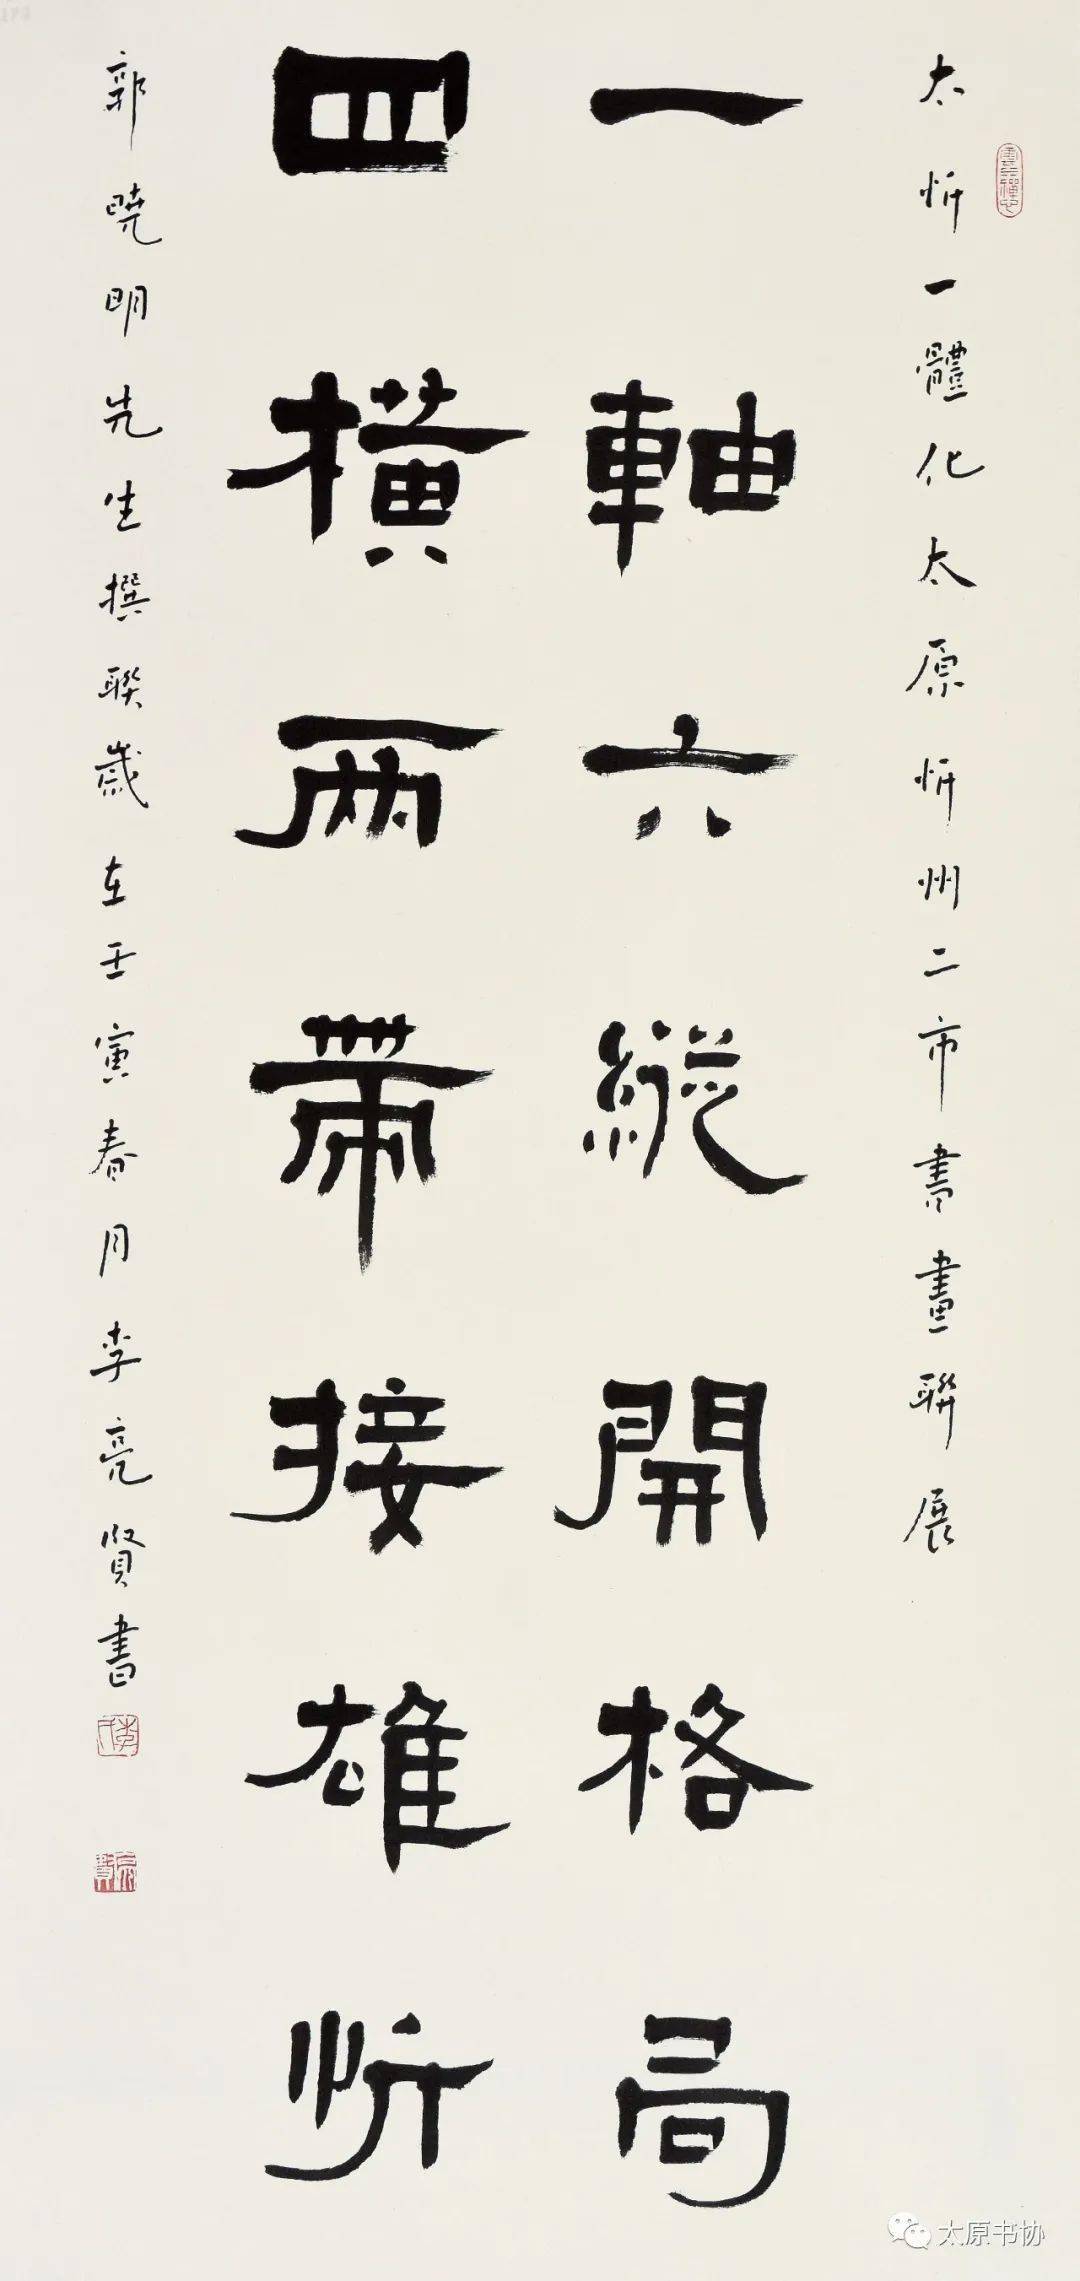 太忻一體化太原忻州二市書畫聯展
一軸六縱開格局
四橫兩帶接雄忻
郭曉明先生撰聯歲在壬寅春月李亮賢書
太原书协